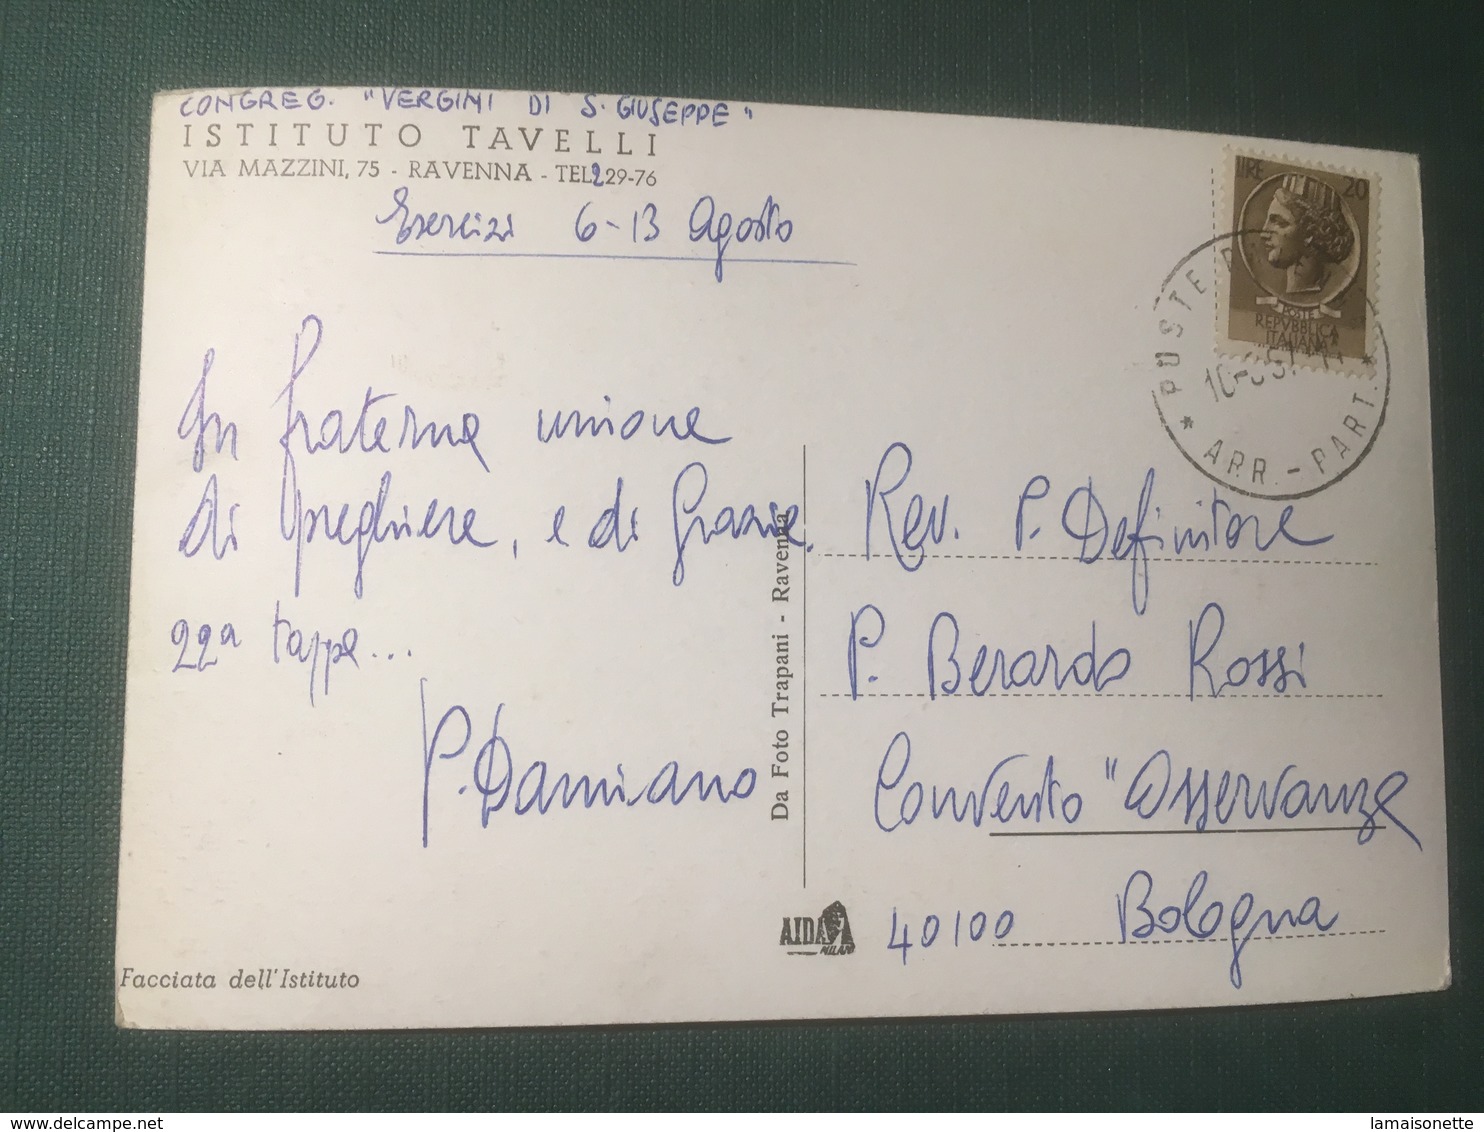 CONGREG. "VERGINI DI S. GIUSEPPE"
ISTITUTO TAVELLI
VIA MAZZINI, 75 - RAVENNA - TEL. 229-76
Esercizi 6-13 Agosto
LIRE 20
POSTE
REPVBBLICA
ITALIANA
POSTE
ARR.-PART.
In fraterna unione
di preghiere, e di Grazie.
22ª tappa...
P. Damiano
Da Foto Trapani - Ravenna
Rev. P. Definitore
P. Berardo Rossi
Convento "Osservanza
40100 Bologna
AIDA
MILANO
Facciata dell'Istituto
www.delcampe.net
lamaisonette